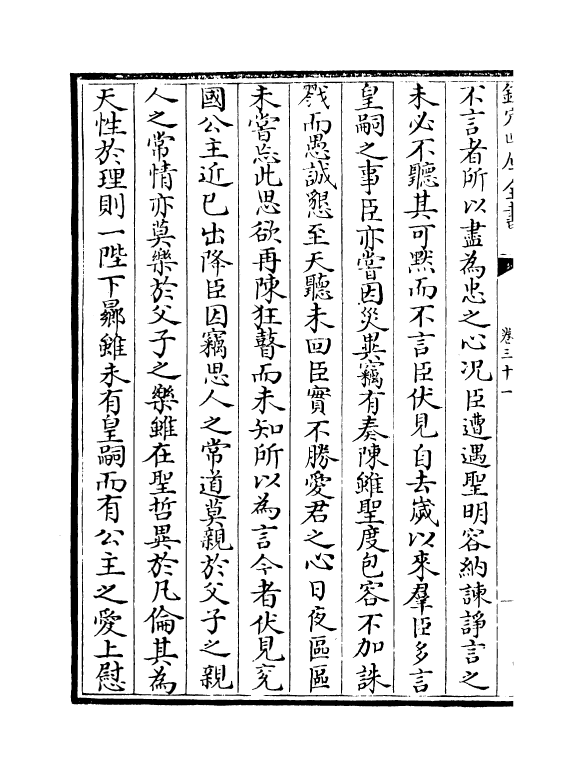 欽定四庫全書
卷三十一
不言者所以盡為忠之心況臣遭遇聖明容納諫諍言之
未必不聽其可黙而不言臣伏見自去嵗以來羣臣多言
皇嗣之事臣亦嘗因災異竊有奏陳雖聖度包容不加誅
戮而愚誠懇至天聽未回臣實不勝愛君之心日夜區區
未嘗忘此思欲再陳狂瞽而未知所以為言今者伏見兖
國公主近已出降臣因竊思人之常道莫親於父子之親
人之常情亦莫樂於父子之樂雖在聖哲異於凡倫其為
天性於理則一陛下曏雖未有皇嗣而有公主之愛上慰